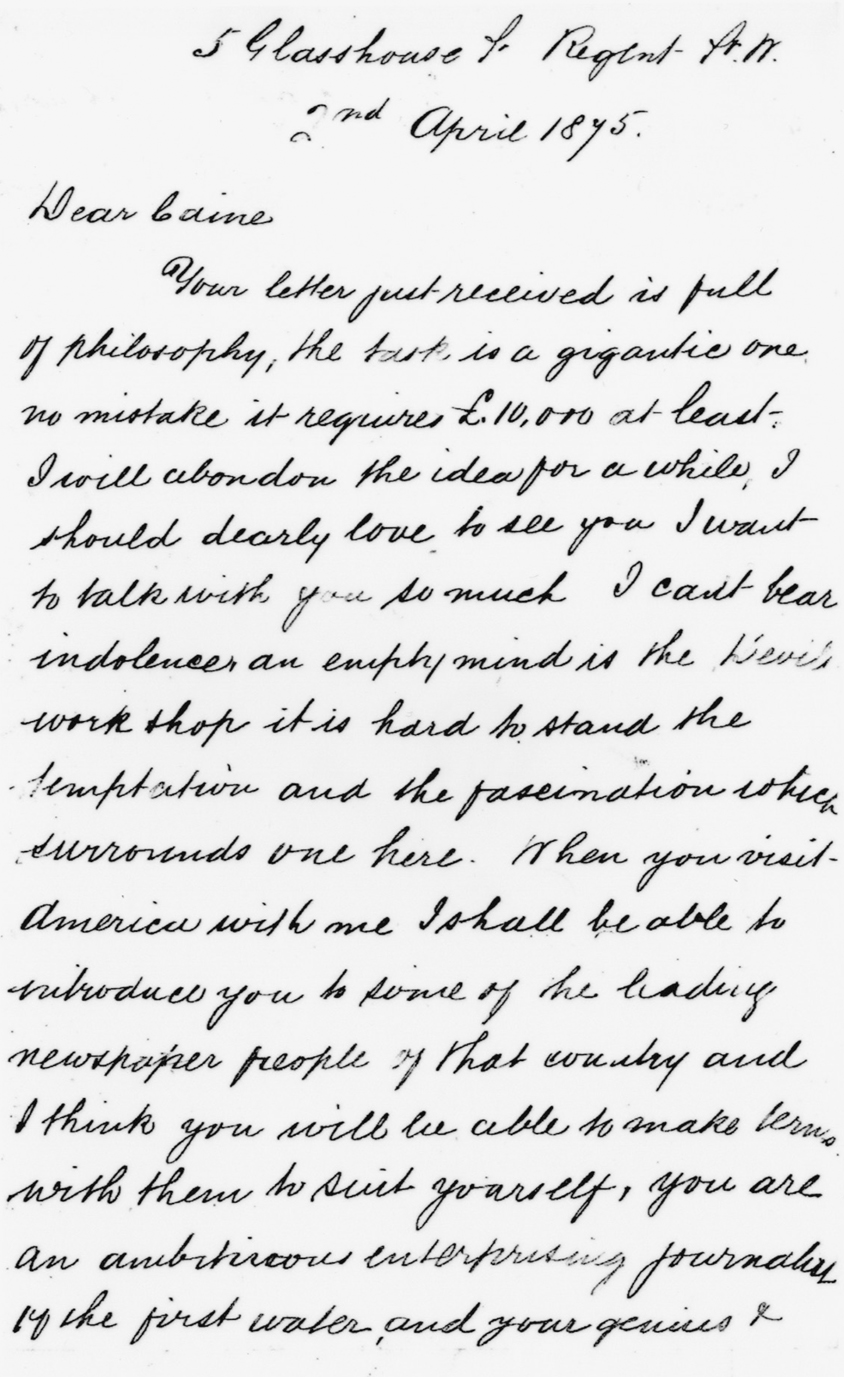 5 Glasshouse St Regent St. W.
2nd April 1875.
Dear Caine
Your letter just received is full
of philosophy, the task is a gigantic one
no mistake it requires £.10,000 at least.
I will abondon the idea for a while, I
should dearly love to see you I want
to talk with you so much I can't bear
indolence, an empty mind is the Devils
work shop it is hard to stand the
temptation and the fascination which
surrounds one here. When you visit
America with me I shall be able to
introduce you to some of the leading
newspaper people of that country and
I think you will be able to make terms
with them to suit yourself, you are
an ambitious enterprising journalist
of the first water, and your genius &